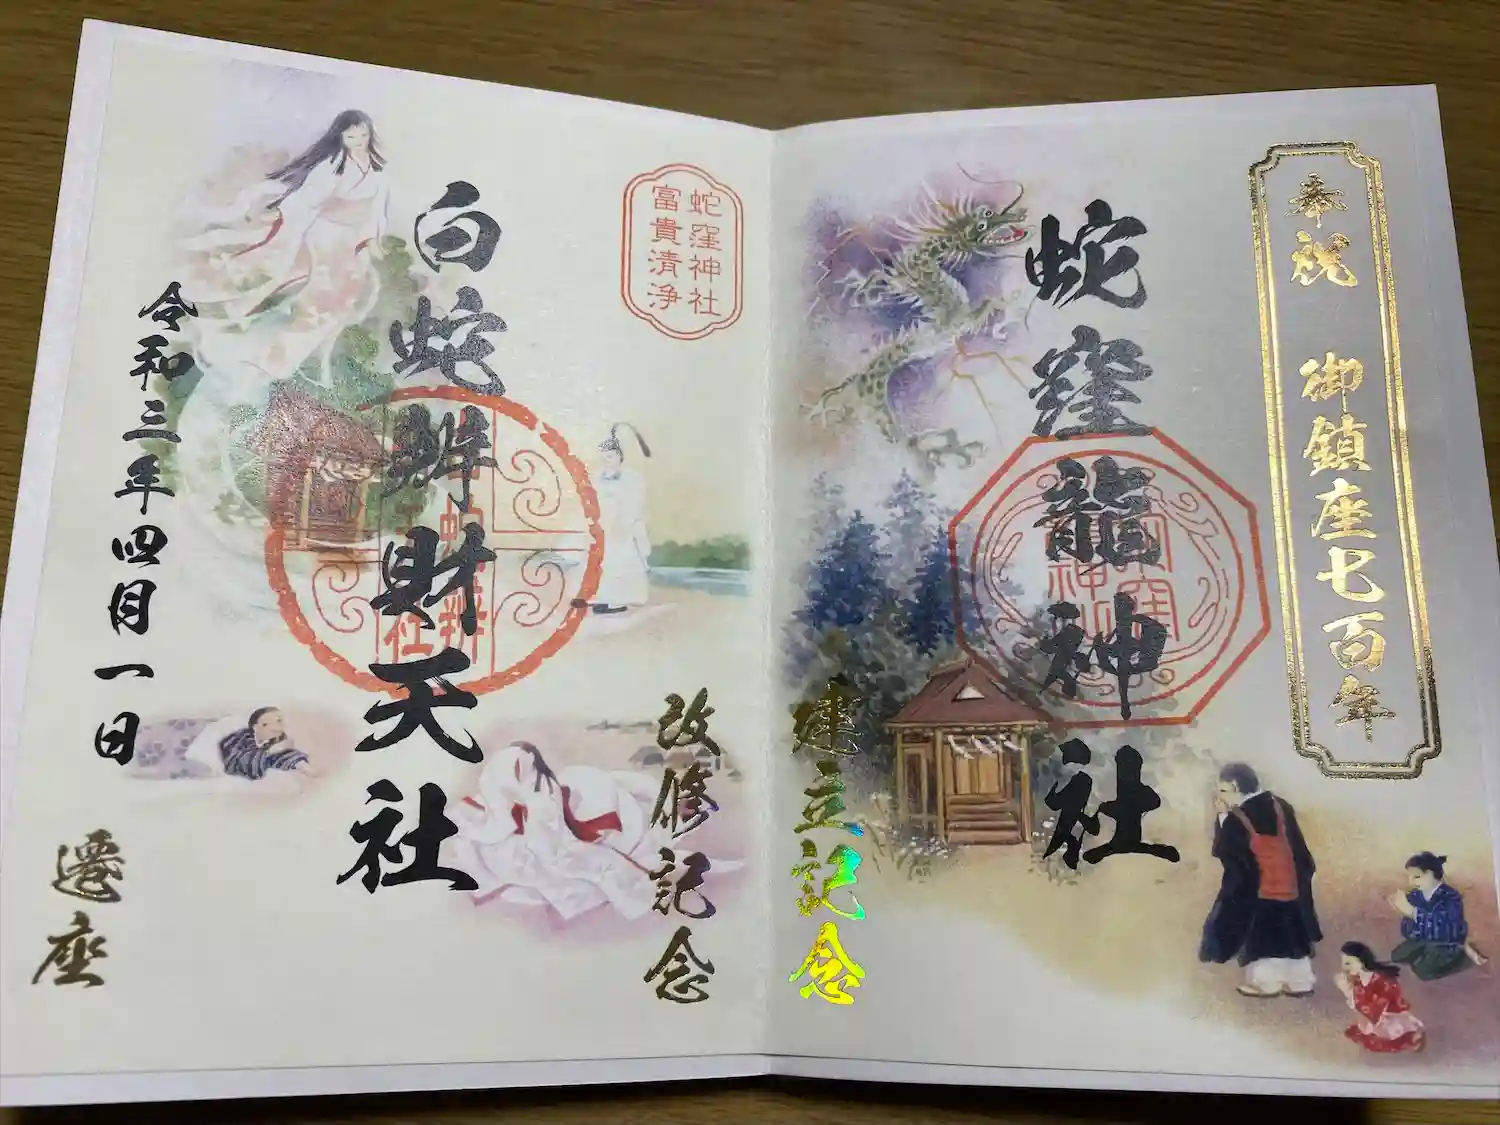 奉祝 御鎮座七百年
蛇窪龍神社
建立記念
蛇窪神社
富貴清浄
改修記念
白蛇辨財天社
令和三年四月一日
遷座